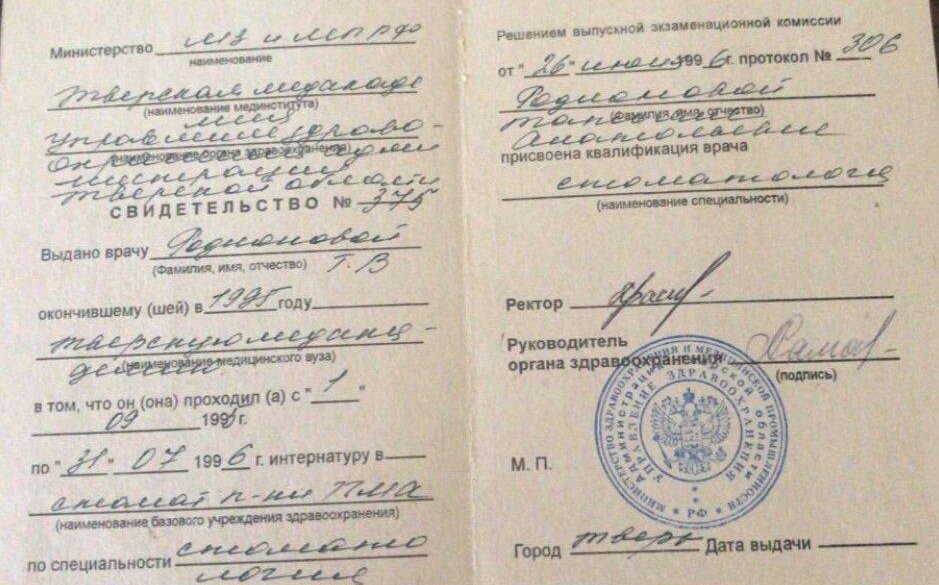 Министерство МЗ и МП РФ
наименование
Тверская медакаде
(наименование мединститута)
мия
Управление здраво-
(наименование органа здравоохранения)
охранения адми
нистрации
Тверской области
СВИДЕТЕЛЬСТВО № 375
Выдано врачу Родионовой
(Фамилия, имя, отчество) Т. В
окончившему (шей) в 1995 году
Тверскую медака-
(наименование медицинского вуза)
демию
в том, что он (она) проходил (а) с " 1 "
09 1995 г.
по " 31 " 07 1996 г. интернатуру в
стомат п-ки ТМА
(наименование базового учреждения здравоохранения)
по специальности стомато
логия
Решением выпускной экзаменационной комиссии
от " 26 " июня 1996 г. протокол № 306
Родионовой
(фамилия, имя, отчество)
присвоена квалификация врача
стоматолога
(наименование специальности)
Ректор
Руководитель
органа здравоохранения
(подпись)
МИНИСТЕРСТВО ЗДРАВООХРАНЕНИЯ И МЕДИЦИНСКОЙ ПРОМЫШЛЕННОСТИ
Администрация Тверской области
УПРАВЛЕНИЕ ЗДРАВООХРАНЕНИЯ
* РФ *
М. П.
Город Тверь Дата выдачи